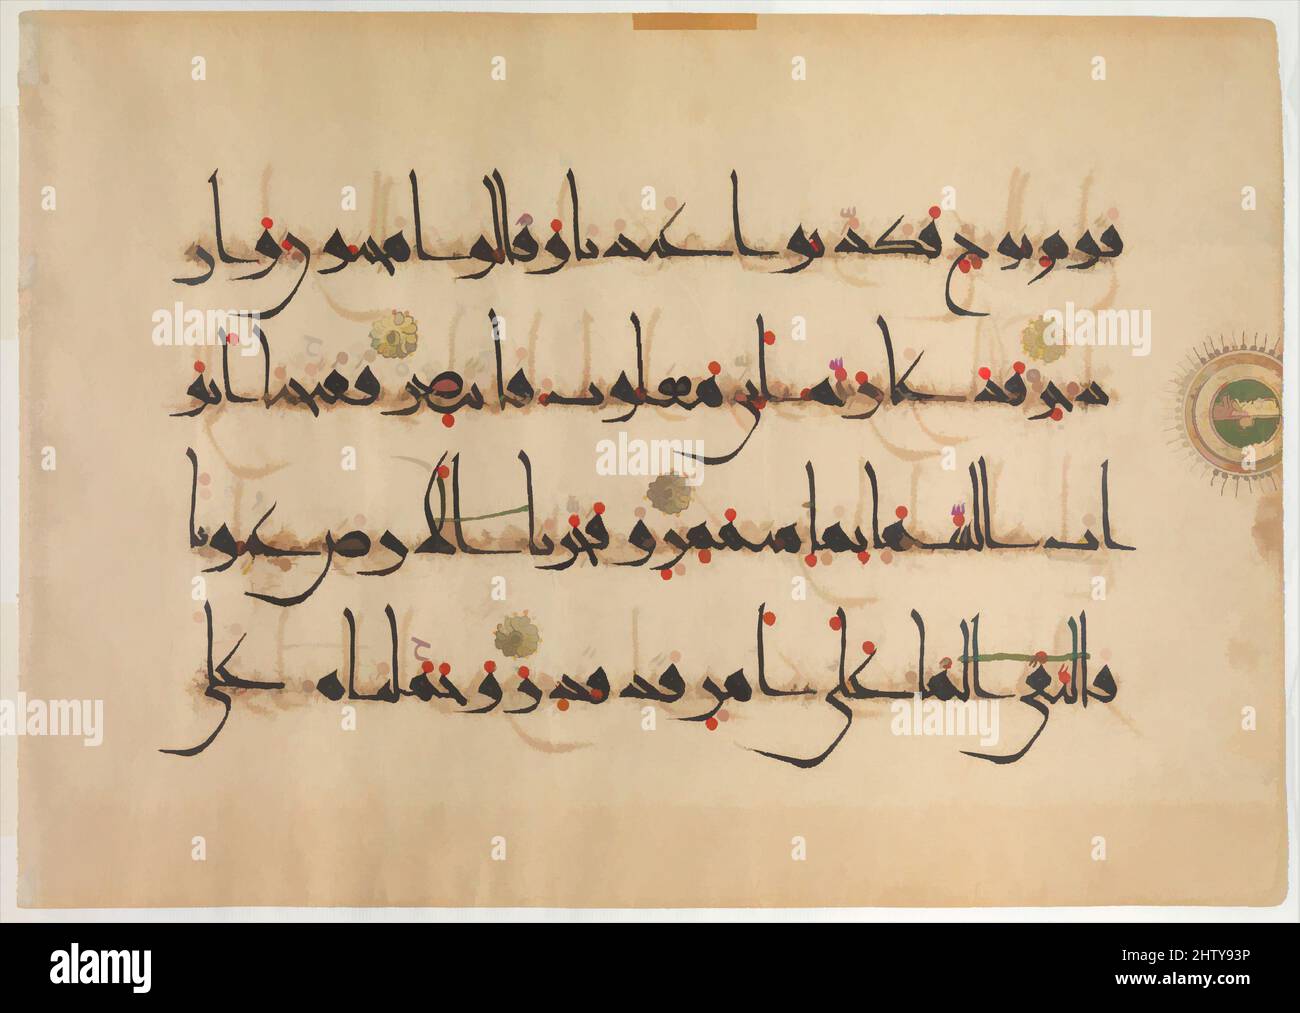 قوم نوح فكذبوا عبدنا وقالوا مجنون واز
دجر فدعا ربه اني مغلوب فانتصر ففتحنا ابو
اب السما بما منهمر وفجرنا الارض عيونا
فالتقى الما على امر قد قدر وحملنه على
alamy
Image ID: 2HTY93P
www.alamy.com